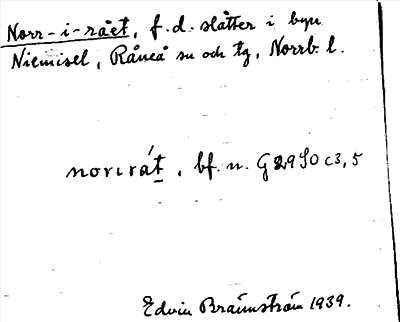 Norr-i-rået, f.d. slåtter i byn
Niemisel, Råneå sn och tg, Norrb. l.
norɩrát, bf. n. G 29 S0 c3,5
Edvin Brännström 1939.